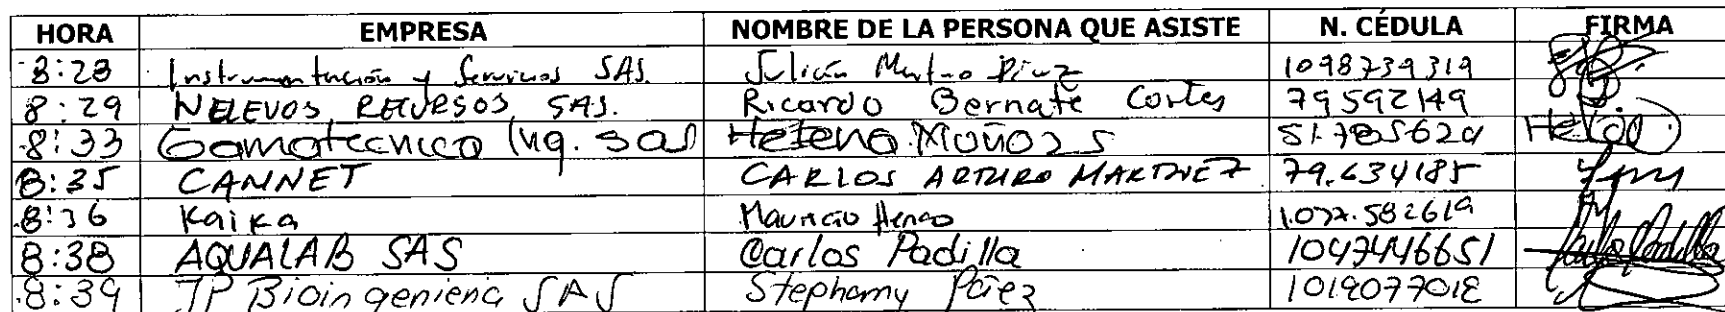 HORA EMPRESA NOMBRE DE LA PERSONA QUE ASISTE N. CÉDULA FIRMA
8:28 Instrumentación y Servicios SAS. Julián Mateo Díaz 1098739319
8:29 NELEVOS RECURSOS SAS. Ricardo Bernate Cortes 79592149
8:33 Gamatecnica Ing. sas Helena Muñoz S 51.785624
8:35 CANNET CARLOS ARTURO MARTINEZ 79.634185
8:36 Kaika Mauricio Henao 1.077.582619
8:38 AQUALAB SAS Carlos Padilla 1047446651
8:39 JP Bioingenieria SAS Stephamy Páez 1019077018